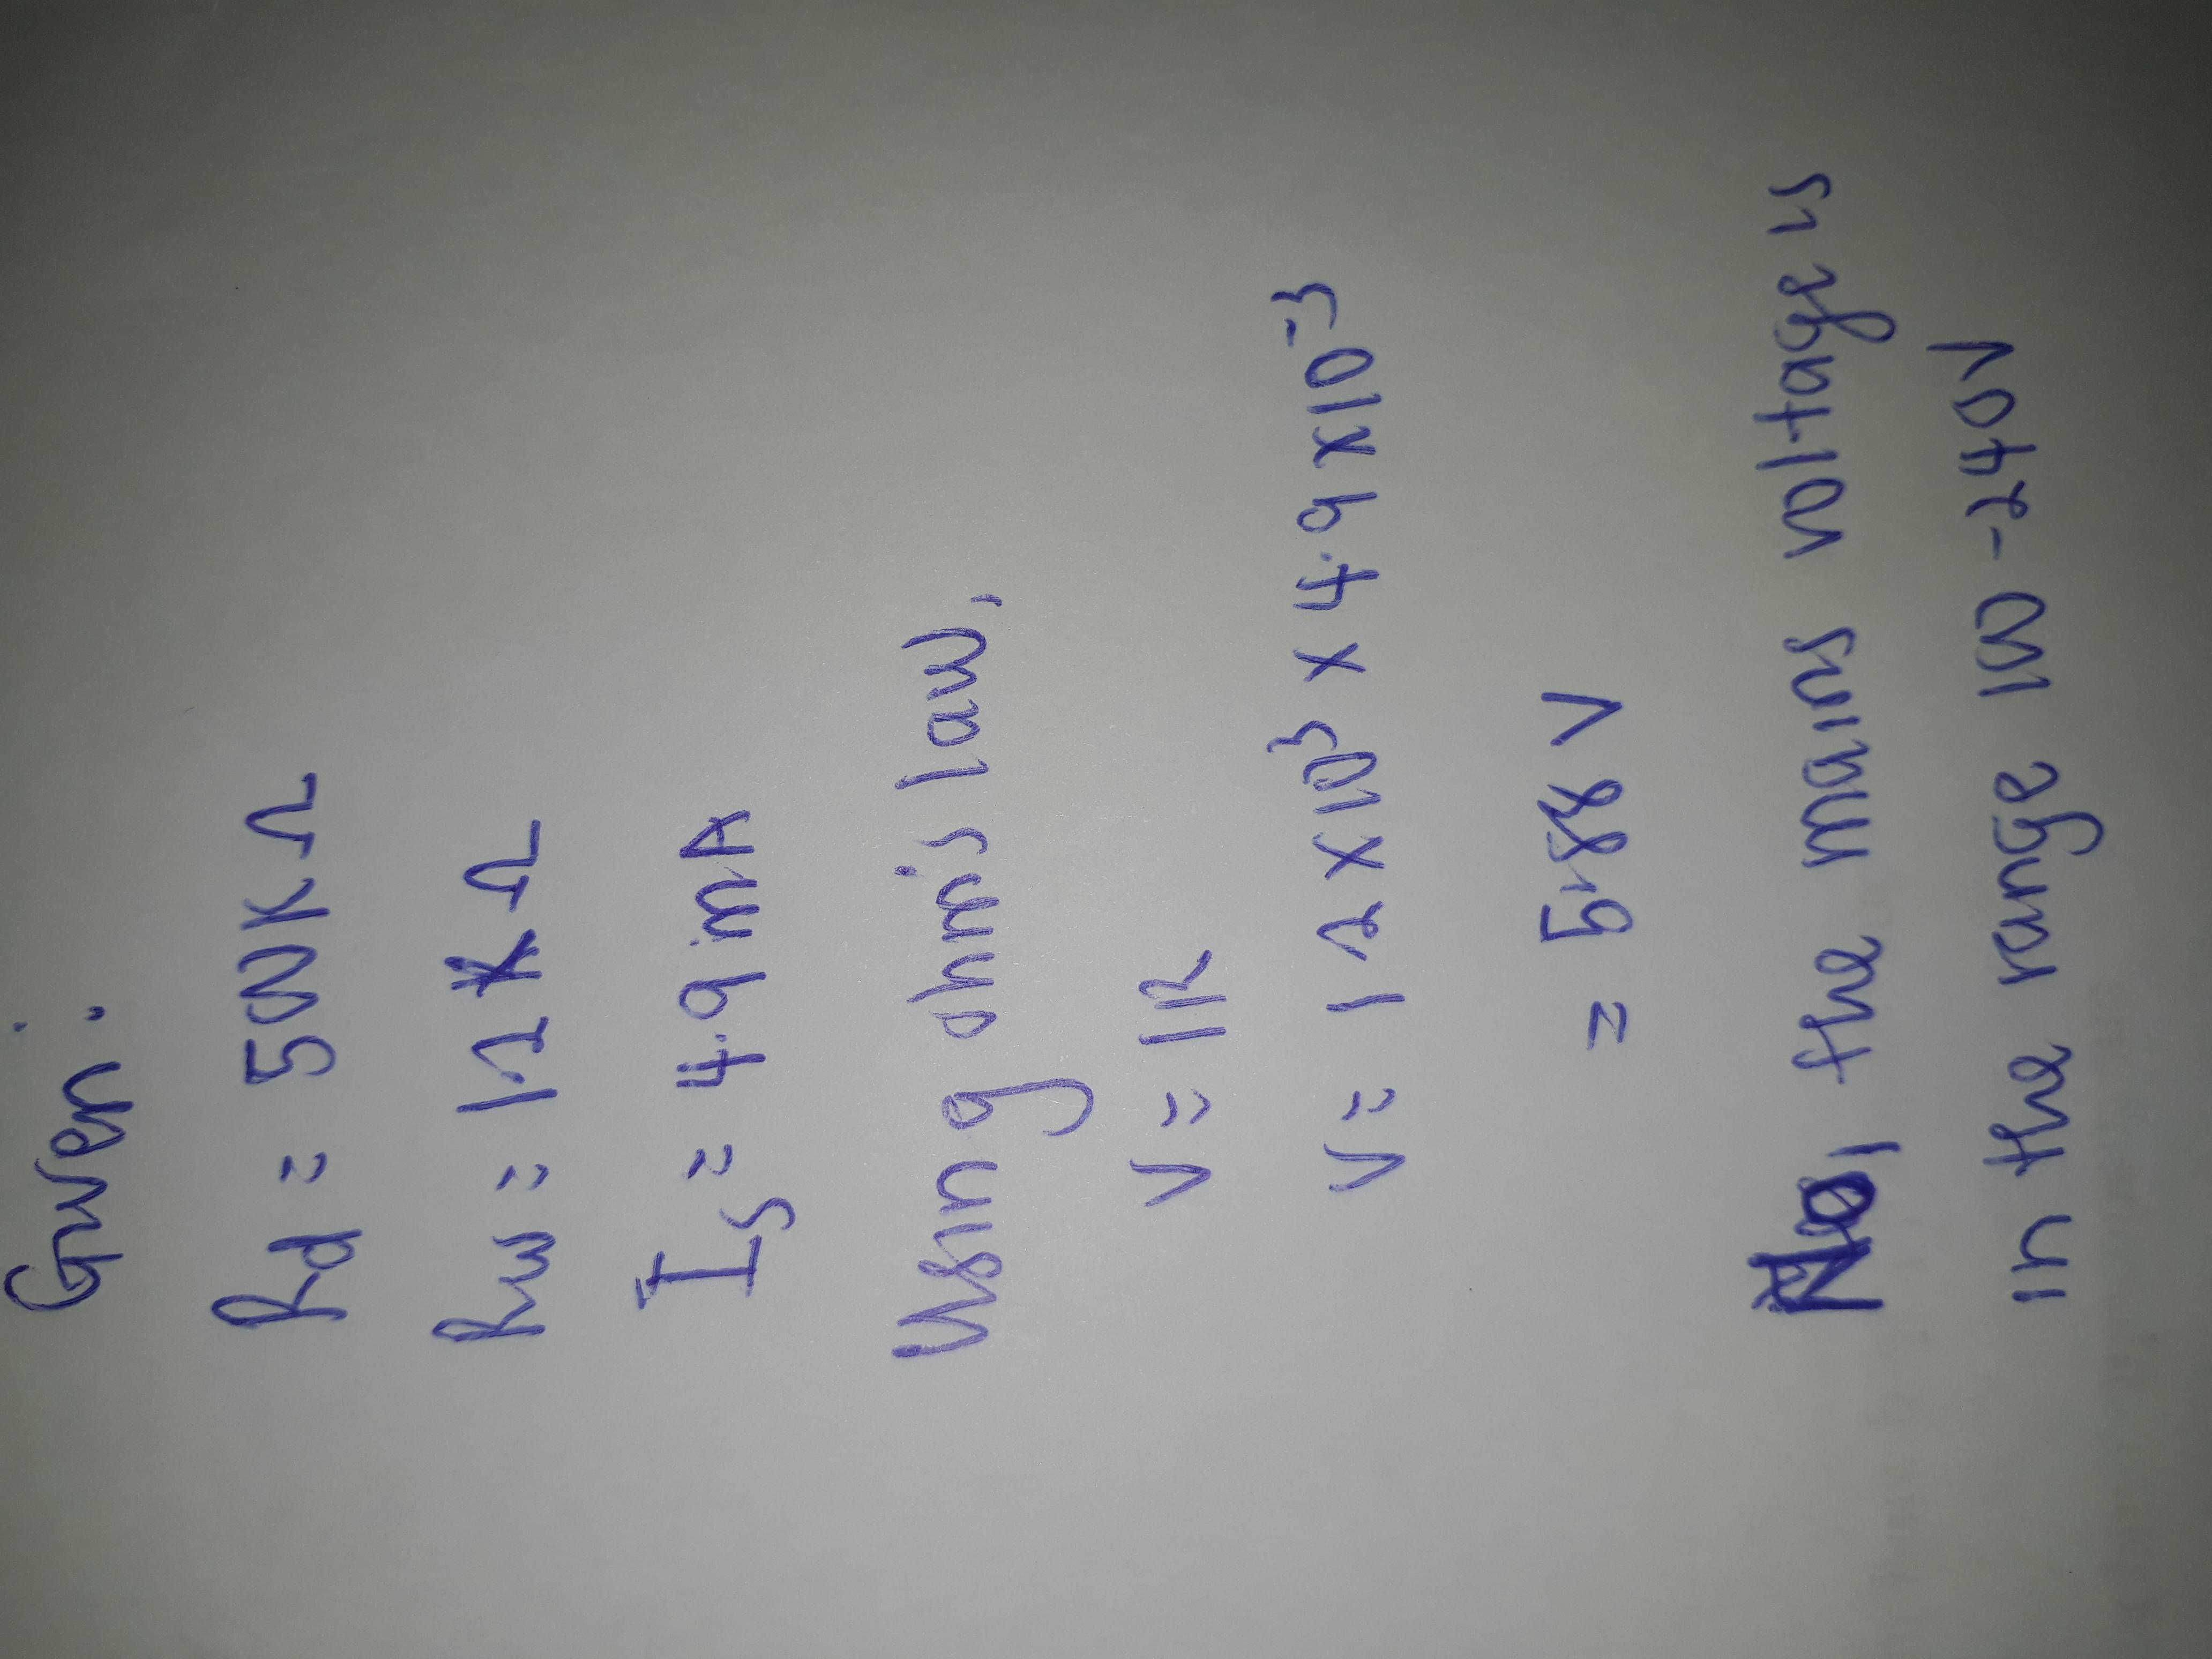 Given:
Rd = 500K Ω
Rw = 1.2 K Ω
Is = 4.9 mA
Using ohm's law,
V = IR
V = 1.2 x 10³ x 4.9 x 10⁻³
= 5.88 V
No, the mains voltage is
in the range 100 - 240V